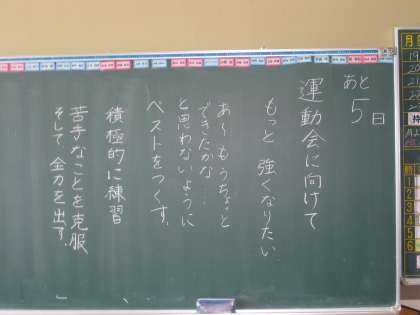 あと
5
日
運動会に向けて
もっと 強くなりたい
あ〜もうちょっと
できたかな…
と思わないように
ベストをつくす。
積極的に練習、
苦手なことを克服
そして 全力を出す。
月
19
20
21
1
2
3
4
5
6